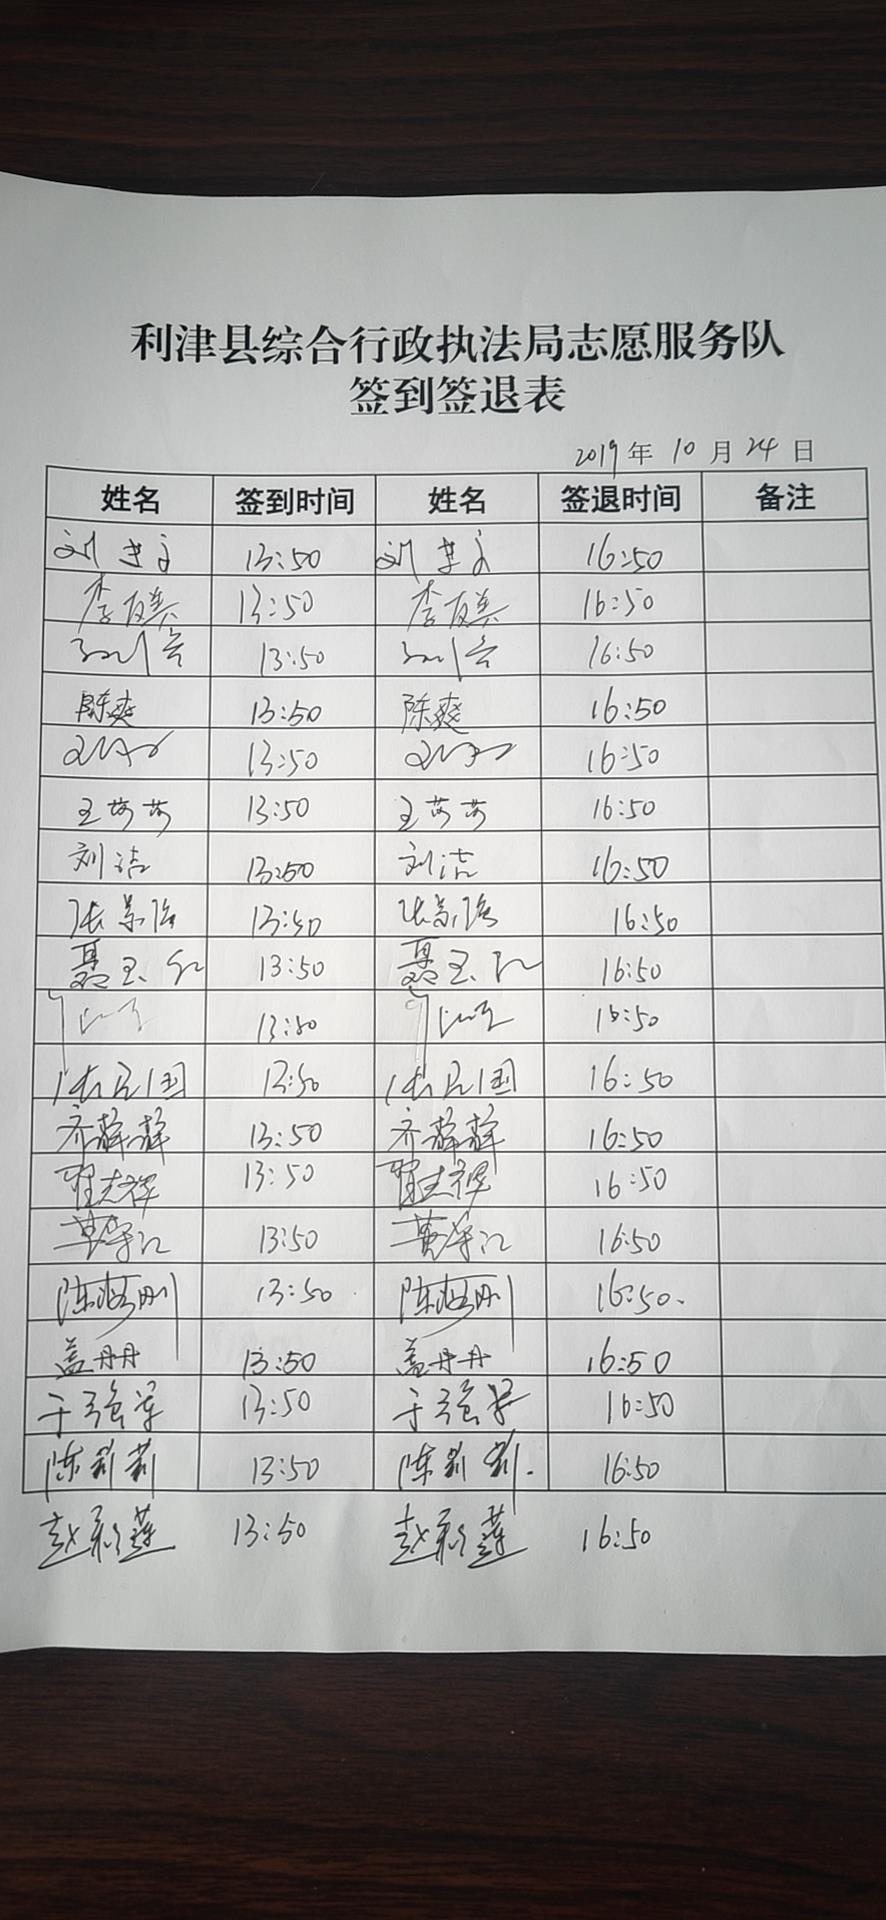 利津县综合行政执法局志愿服务队
签到签退表
2019年10月24日
姓名 签到时间 姓名 签退时间 备注
刘 13:50 刘 16:50
李 13:50 李 16:50
13:50 16:50
陈爽 13:50 陈爽 16:50
13:50 16:50
王莎莎 13:50 王莎莎 16:50
刘洁 13:50 刘洁 16:50
张 13:50 张 16:50
聂玉红 13:50 聂玉红 16:50
13:50 16:50
张民国 13:50 张民国 16:50
齐静静 13:50 齐静静 16:50
翟志祥 13:50 翟志祥 16:50
13:50 黄 16:50
陈 刚 13:50 陈 刚 16:50.
盖丹丹 13:50 盖丹丹 16:50
于强军 13:50 于强军 16:50
陈莉莉 13:50 陈莉莉. 16:50
赵 莲 13:50 赵 莲 16:50